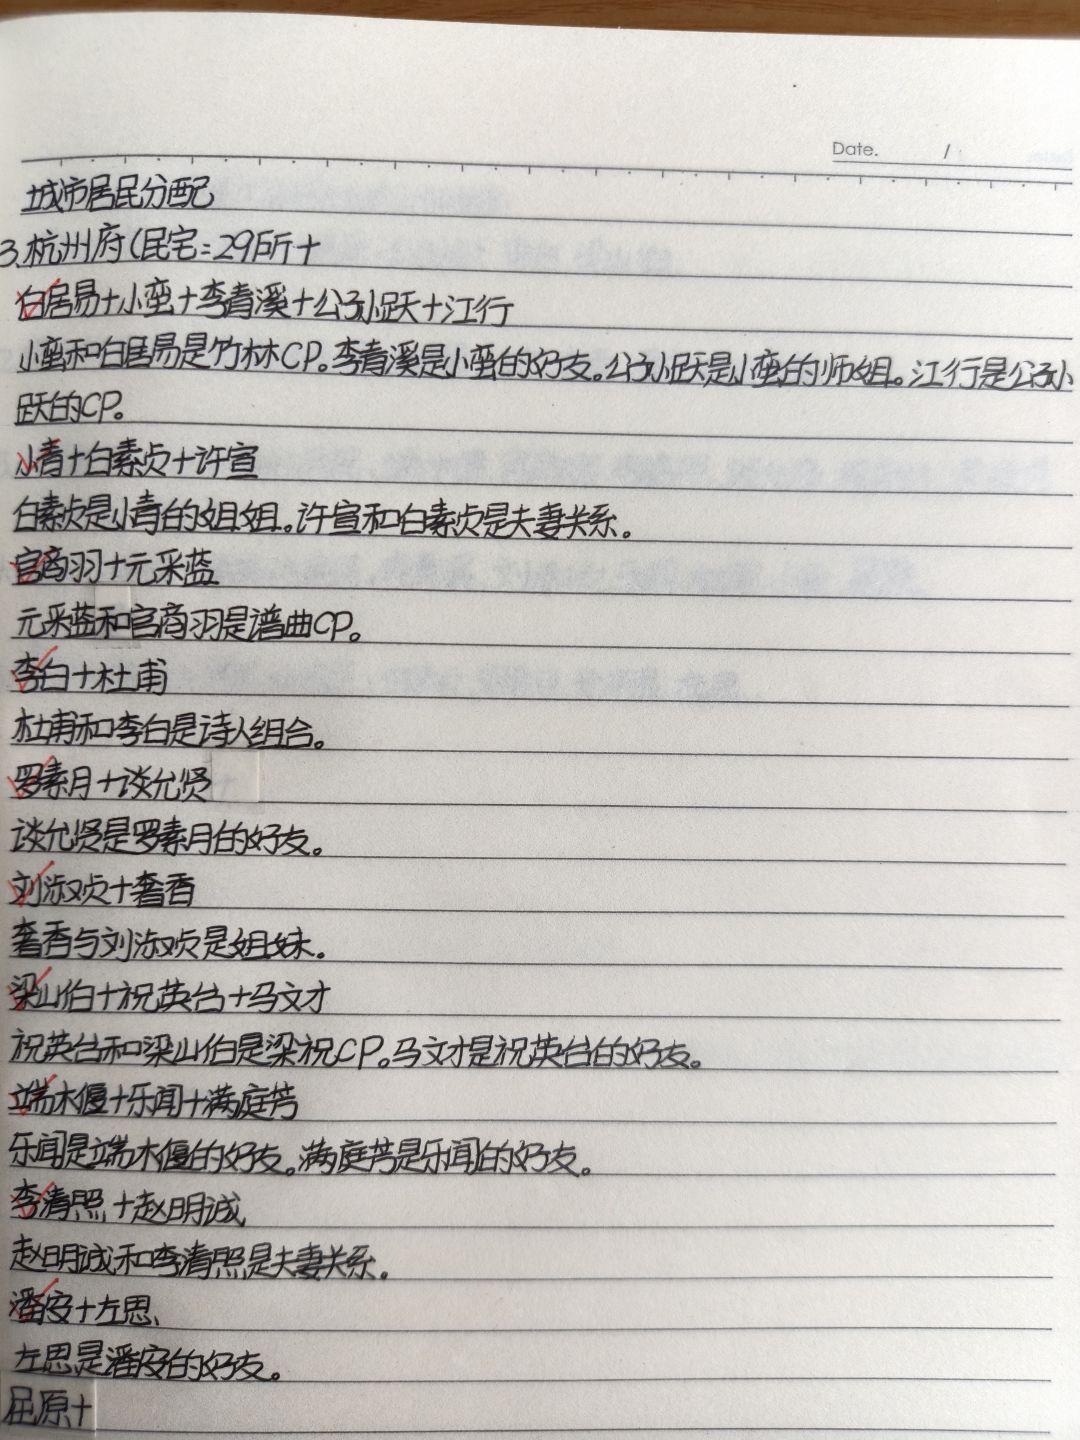 Date. /
城市居民分配
3.杭州府(民宅=29所+
白居易+小蛮+李青溪+公孙跃+江行
小蛮和白居易是竹林CP。李青溪是小蛮的好友。公孙跃是小蛮的师姐。江行是公孙
跃的CP。
小青+白素贞+许宣
白素贞是小青的姐姐。许宣和白素贞是夫妻关系。
宫商羽+元采蓝
元采蓝和宫商羽是谱曲CP。
李白+杜甫
杜甫和李白是诗人组合。
罗素月+谈允贤
谈允贤是罗素月的好友。
刘淑贞+奢香
奢香与刘淑贞是姐妹。
梁山伯+祝英台+马文才
祝英台和梁山伯是梁祝CP。马文才是祝英台的好友。
端木偃+乐闻+满庭芳
乐闻是端木偃的好友。满庭芳是乐闻的好友。
李清照+赵明诚
赵明诚和李清照是夫妻关系。
潘安+左思、
左思是潘安的好友。
屈原+